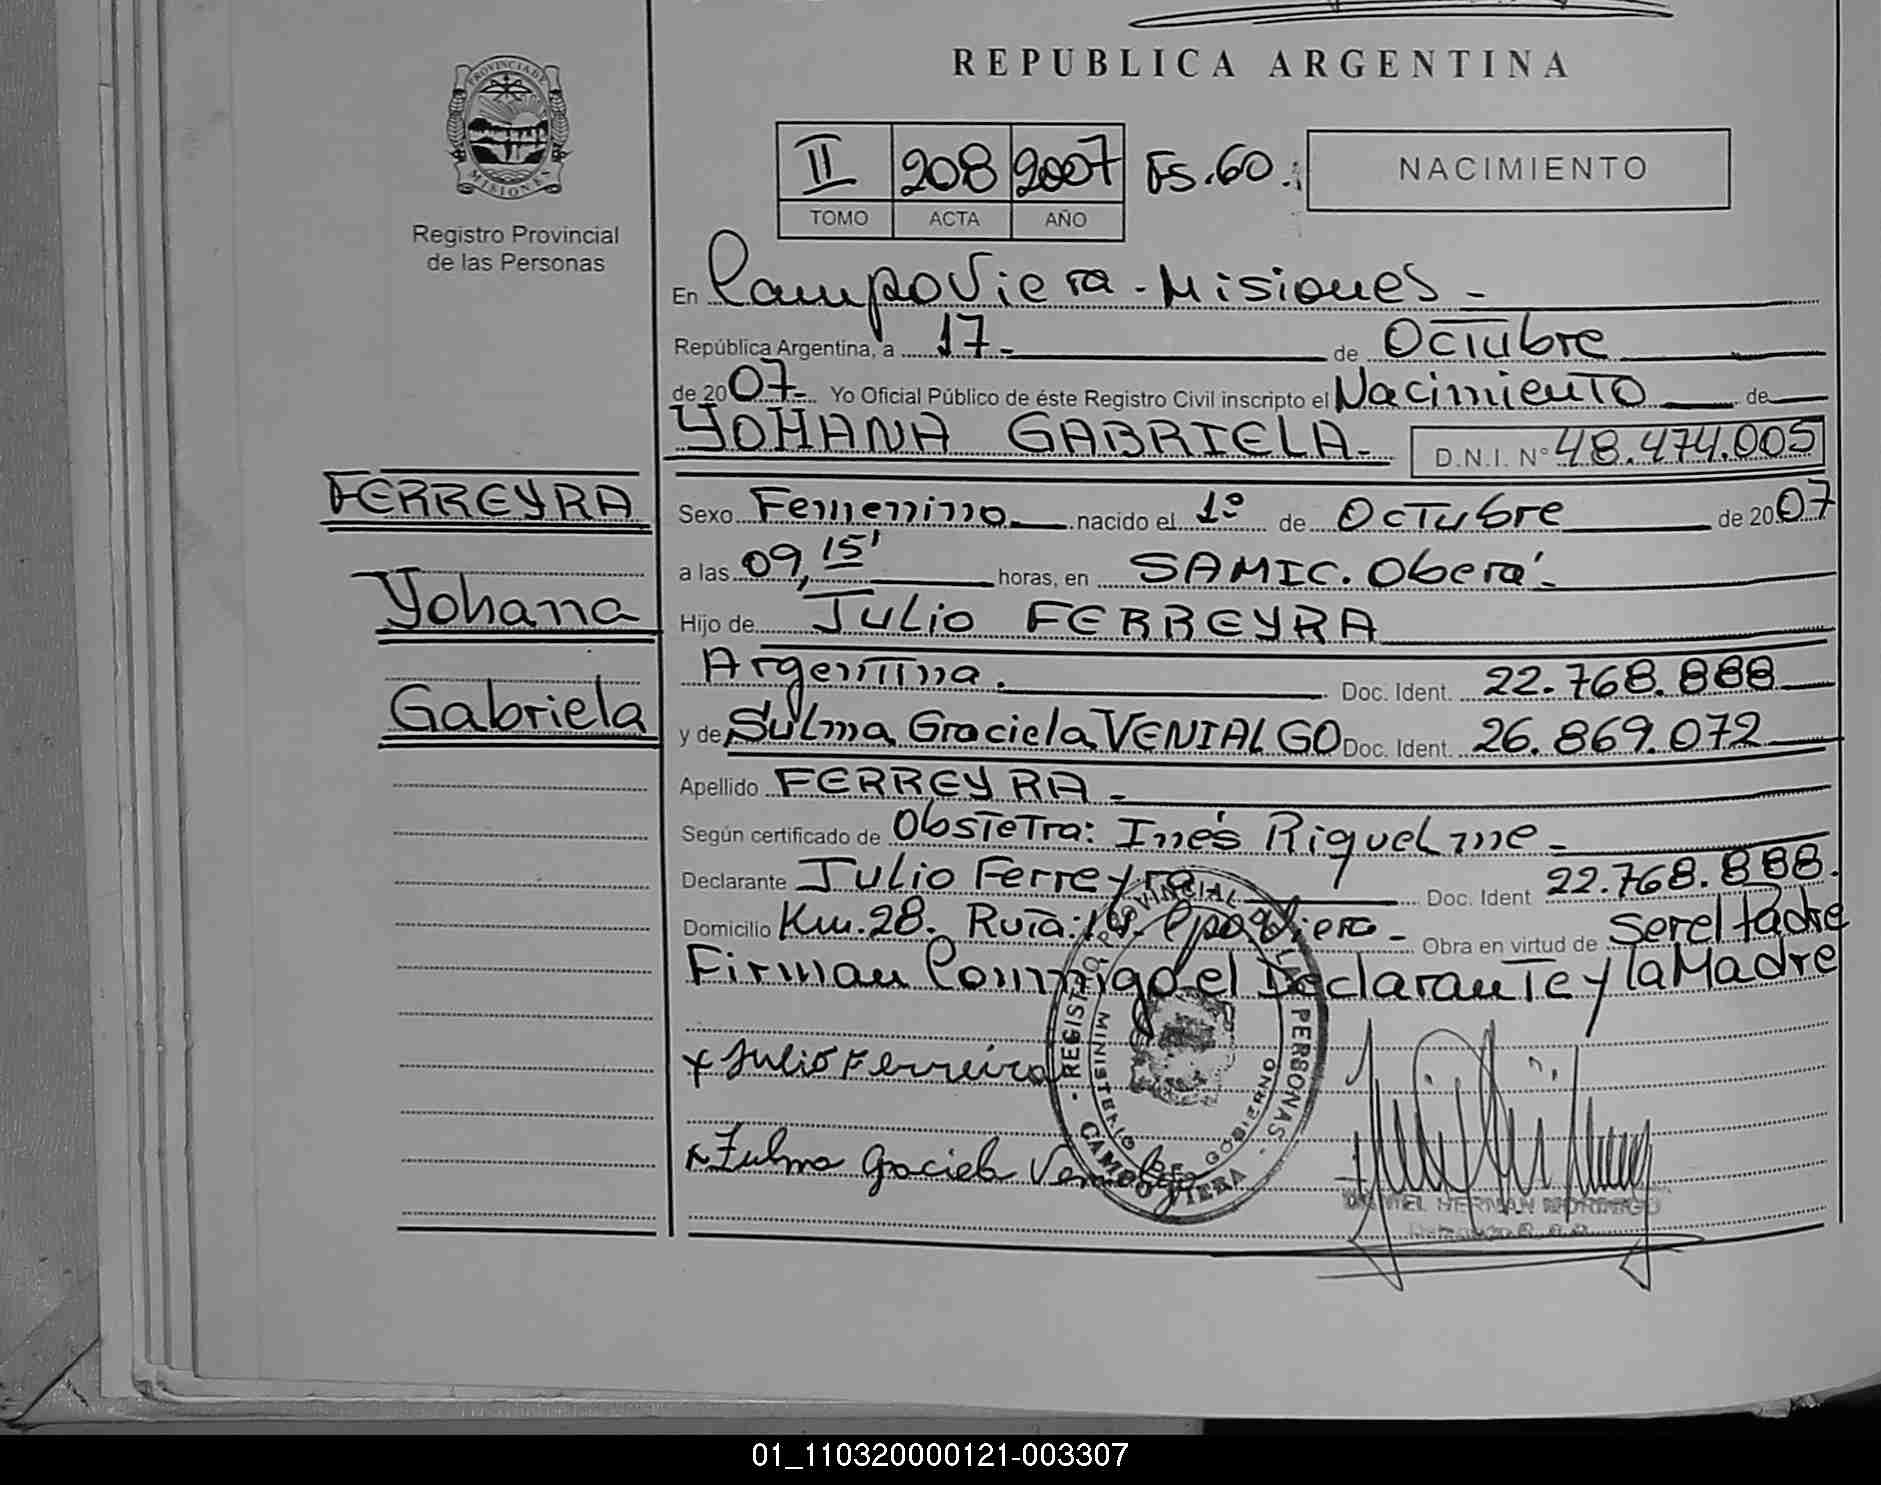 REPUBLICA ARGENTINA
PROVINCIA DE MISIONES
Registro Provincial
de las Personas
II 208 2007 Fs. 60.
TOMO ACTA AÑO
NACIMIENTO
En Campo Viera - Misiones -
República Argentina, a 17 - de Octubre
de 2007 - Yo Oficial Público de éste Registro Civil inscripto el Nacimiento de
YOHANA GABRIELA - D.N.I. N° 48.474.005
FERREYRA
Yohana
Gabriela
Sexo Femenino nacido el 1° de Octubre de 2007
a las 09,15' horas, en SAMIC. Oberá -
Hijo de JULIO FERREYRA
Argentina. Doc. Ident. 22.768.888
y de Sulma Graciela VENIALGO Doc. Ident. 26.869.072
Apellido FERREYRA -
Según certificado de Obstetra: Inés Riquelme -
Declarante Julio Ferreyra Doc. Ident 22.768.888.
Domicilio Km. 28. Ruta: 14. Cpo Viera - Obra en virtud de ser el Padre
Firman Conmigo el Declarante y la Madre
x Julio Ferreira
x Zulma Graciela Venialgo
REGISTRO PROVINCIAL DE LAS PERSONAS
MINISTERIO DE GOBIERNO
CAMPO VIERA
HERNAN
01_110320000121-003307